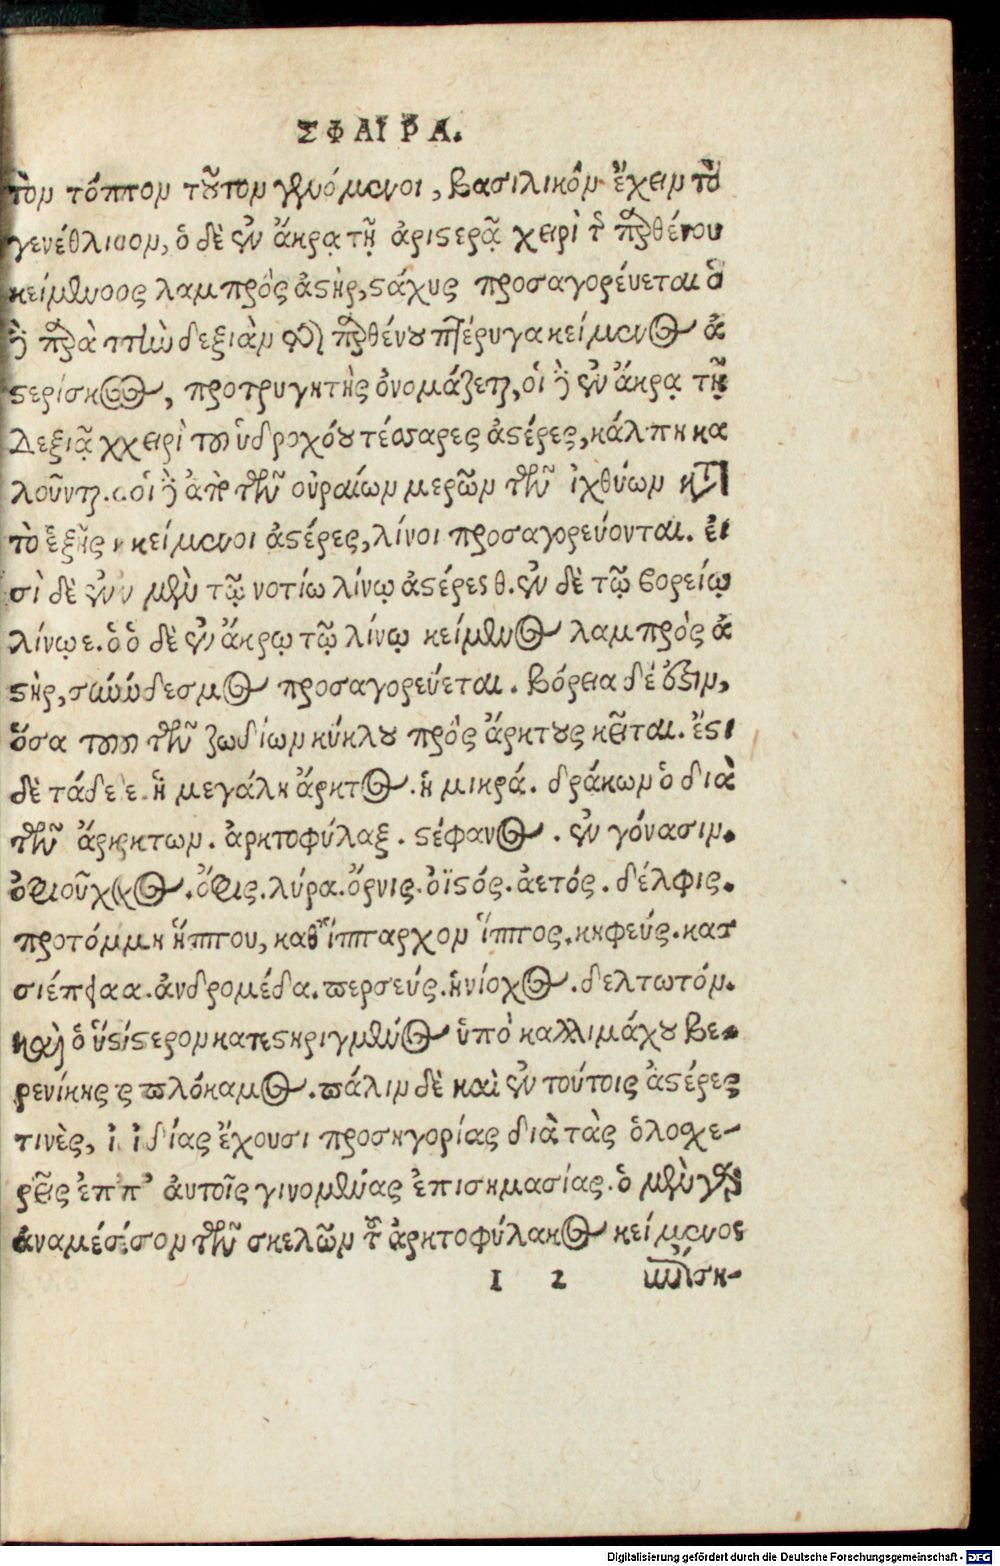 ΣΦΑΙΡΑ.
τὸν τόπον τοῦτον γενόμενοι, βασιλικὸν ἔχειν τὸ
γενέθλιον, ὁ δὲ ἐν ἄκρᾳ τῇ ἀριστερᾷ χειρὶ τῆς παρθένου
κείμενος λαμπρὸς ἀστὴρ, στάχυς προσαγορεύεται ὁ
δὲ παρὰ τὴν δεξιὰν τῆς παρθένου πτέρυγα κείμενος ἀ
στερίσκος, προτρυγητὴς ὀνομάζεται, οἱ δὲ ἐν ἄκρᾳ τῇ
δεξιᾷ χειρὶ τοῦ ὑδροχόου τέσσαρες ἀστέρες, κάλπη κα
λοῦνται. οἱ δὲ ἀπὸ τῶν οὐραίων μερῶν τῶν ἰχθύων κατὰ
τὸ ἑξῆς κείμενοι ἀστέρες, λίνοι προσαγορεύονται. εἰ
σὶ δὲ ἐν μὲν τῷ νοτίῳ λίνῳ ἀστέρες θ. ἐν δὲ τῷ βορείῳ
λίνῳ ε. ὁ δὲ ἐν ἄκρῳ τῷ λίνῳ κείμενος λαμπρὸς ἀ
στὴρ, σύνδεσμος προσαγορεύεται. Βόρεια δέ ἐστιν,
ὅσα τοῦ τῶν ζωδίων κύκλου πρὸς ἄρκτους κεῖται. ἔστι
δὲ τάδε. ἡ μεγάλη ἄρκτος. ἡ μικρά. δράκων ὁ διὰ
τῶν ἄρκτων. ἀρκτοφύλαξ. στέφανος. ἐν γόνασιν.
ὀφιοῦχος. ὄφις. λύρα. ὄρνις. ὀϊστός. ἀετός. δέλφις.
προτομὴ ἵππου, καθ᾽ ἵππαρχον ἵππος. κηφεύς. κασ
σιέπεια. ἀνδρομέδα. περσεύς. ἡνίοχος. δελτωτόν.
καὶ ὁ ὕστερον κατεστηριγμένος ὑπὸ καλλιμάχου βε-
ρενίκης πλόκαμος. πάλιν δὲ καὶ ἐν τούτοις ἀστέρες
τινὲς, ἰδίας ἔχουσι προσηγορίας διὰ τὰς ὁλοσχε-
ρεῖς ἐπ᾽ αὐτοῖς γινομένας ἐπισημασίας. ὁ μὲν γὰρ
ἀναμέσον τῶν σκελῶν τοῦ ἀρκτοφύλακος κείμενος
I 2
Digitalisierung gefördert durch die Deutsche Forschungsgemeinschaft - DFG